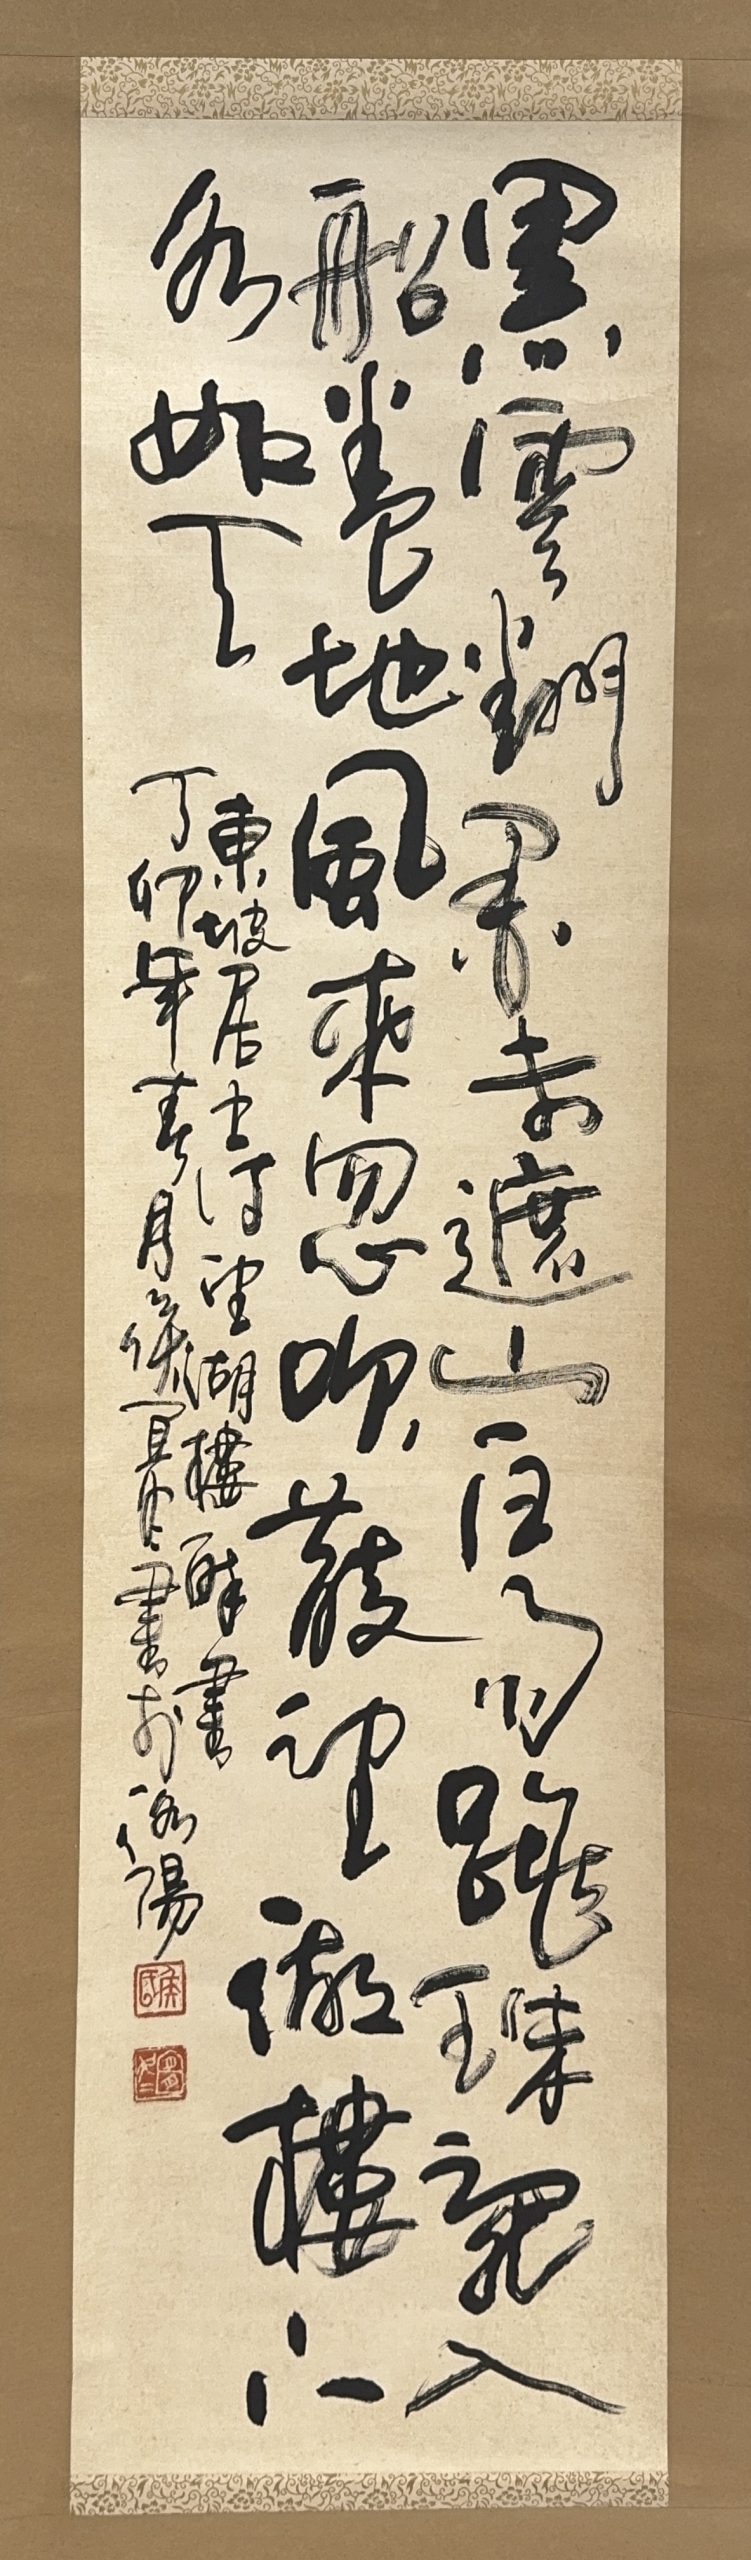 黑雲翻墨未遮山白雨跳珠亂入
船卷地風來忽吹散望湖樓下
水如天
東坡居士詩望湖樓醉書
丁卯年春月侯書於洛陽